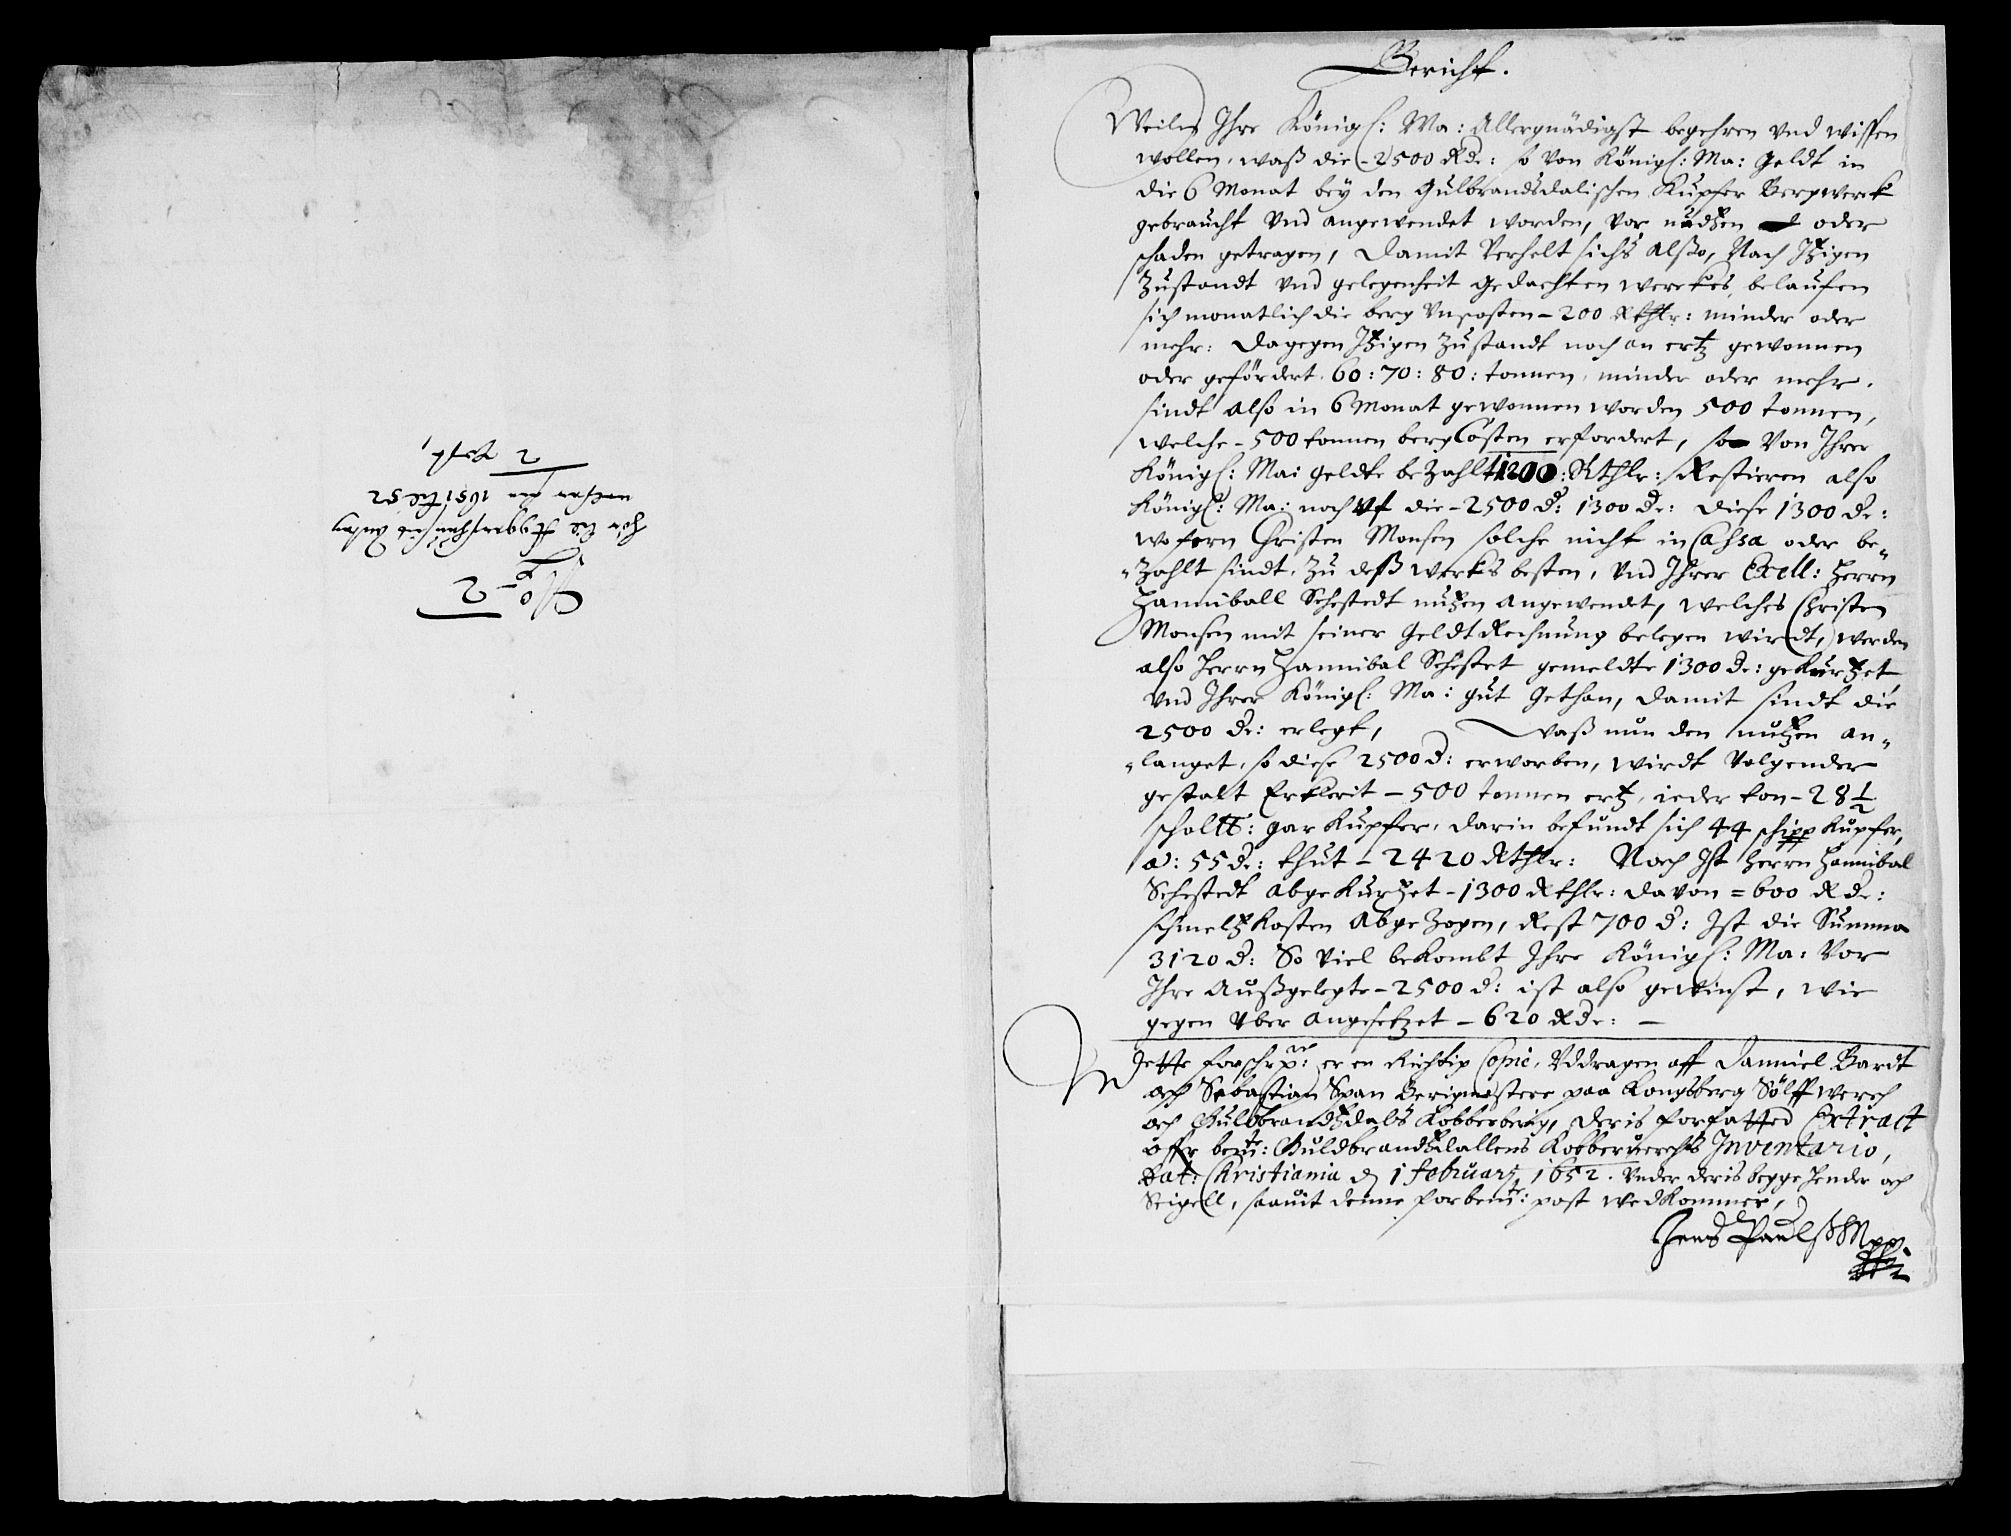 No 2
1651 til 52
2
Bericht.
Weiln Ihre Königl: Ma: Allergnädigst begehren vnd wissen
wollen, waß die - 2500 Rd: so von Königl: Ma: geldt in
die 6 Monat bey den Gulbrandsdalischen Kupfer Bergwerck
gebraucht vnd angewendet worden, vor nudzen oder
schaden getragen, Damit verhelt sichs alßo, Nach Itzigen
Zustandt vnd gelegenheit gedachten werckes, belaufen
sich monatlich die berg vnkosten - 200 Rthlr: minder oder
mehr: Dagegen Itzigen Zustandt noch an ertz gewonnen
oder gefördert. 60: 70: 80: tonnen, minder oder mehr.
sindt also in 6 Monat gewonnen worden 500 tonnen,
welche - 500 tonnen berg Costen erfordert, so von Ihrer
Königl: Mai geldte beZahlt 1200: Rthlr: Restieren also
Königl: Ma: noch vf die - 2500 d: 1300 de: diese 1300 de:
wofern Christen Monsen solche nicht in Cassa oder be-
-Zahlt sindt, Zu deß werks besten, vnd Ihrer Exell: Herrn
Hanniball Sehestedt nutzen angewendet, welches Christen
Monsen mit seiner geldt Rechnung belegen wirdt, werden
also Herrn Hannibal Sehestet gemeldte 1300 de: gekurtzet
vnd Ihrer Königl: Ma: gut gethan, damit sindt die
2500 de: erlegt, Waß nun den nutzen an-
-langet, so diese 2500 d: erworben, wirdt volgender
gestalt Erklerit - 500 tonnen ertz, ieder ton - 28 1/2
schaltt: gar Kupfer, darin befundt sich 44 schipp Kupfer,
a: 55 de: thut - 2420 Rthlr: Noch Ist Herrn Hannibal
Sehestedt abgekurtzet - 1300 Rthlr: davon = 600 Rde:
schmeltz Kosten abgeZogen, Rest 700 d: Ist die Summa
3120 d: So viel bekombt Ihre Königl: Ma: vor
Ihre Außgelegte - 2500 d: ist also gewinst, wie
gegen vber angesetzet - 620 Rde: -
Dette forschr: er en Richtig Copie, Uddragen aff Danniel Bardt
och Sebastian Span Berigmestere paa Kongsberg Sölffwerch
och Guldbrandtzdals Kobberberig, deris forfatted Extract
offr bemte: Guldbrandtzdallens Kobberuerchs Inventario,
Dat: Christiania d 1 February 1652. Vnder deris begge hender och
Seigell, saauit denne forbemte: post vedkommer,
Jens Paulss Mpp.